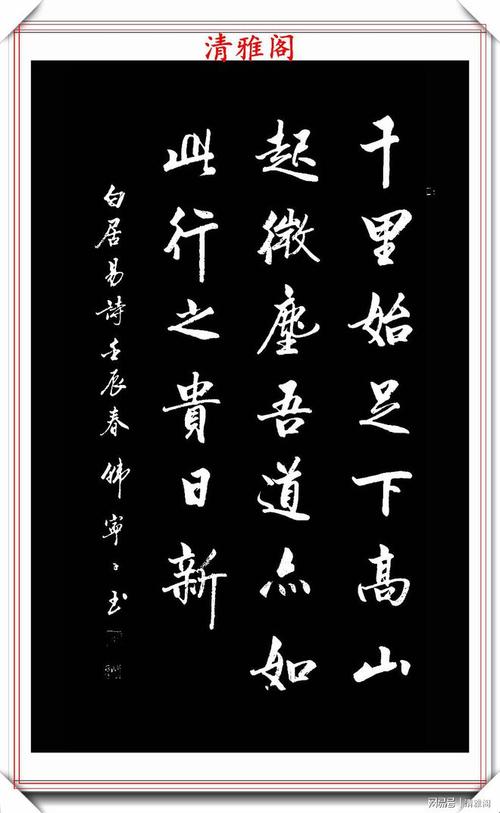 清雅阁
千里始足下高山
起微塵吾道亦如
此行之貴日新
白居易詩壬辰春韩寧〻书
网易号|清雅阁